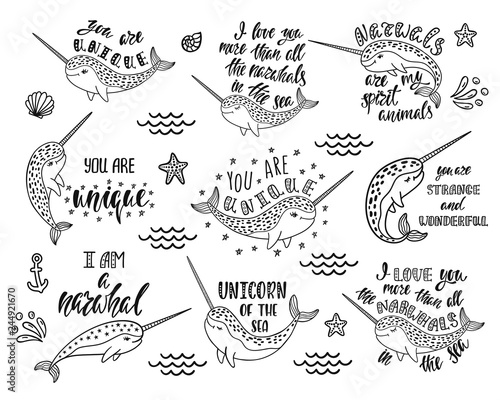 you are
UNIQUE
I love you
more than all
the narwhals
in the sea
NATWALS
are my
spirit
animals
YOU ARE
unique
YOU ARE
UNIQUE
you are
STRANGE
AND
WONDERFUL
I AM
a
narwhal
UNICORN
OF THE
SEA
I LOVE you
more than all
the NARWHALS
in the sea
Adobe Stock | #244921670